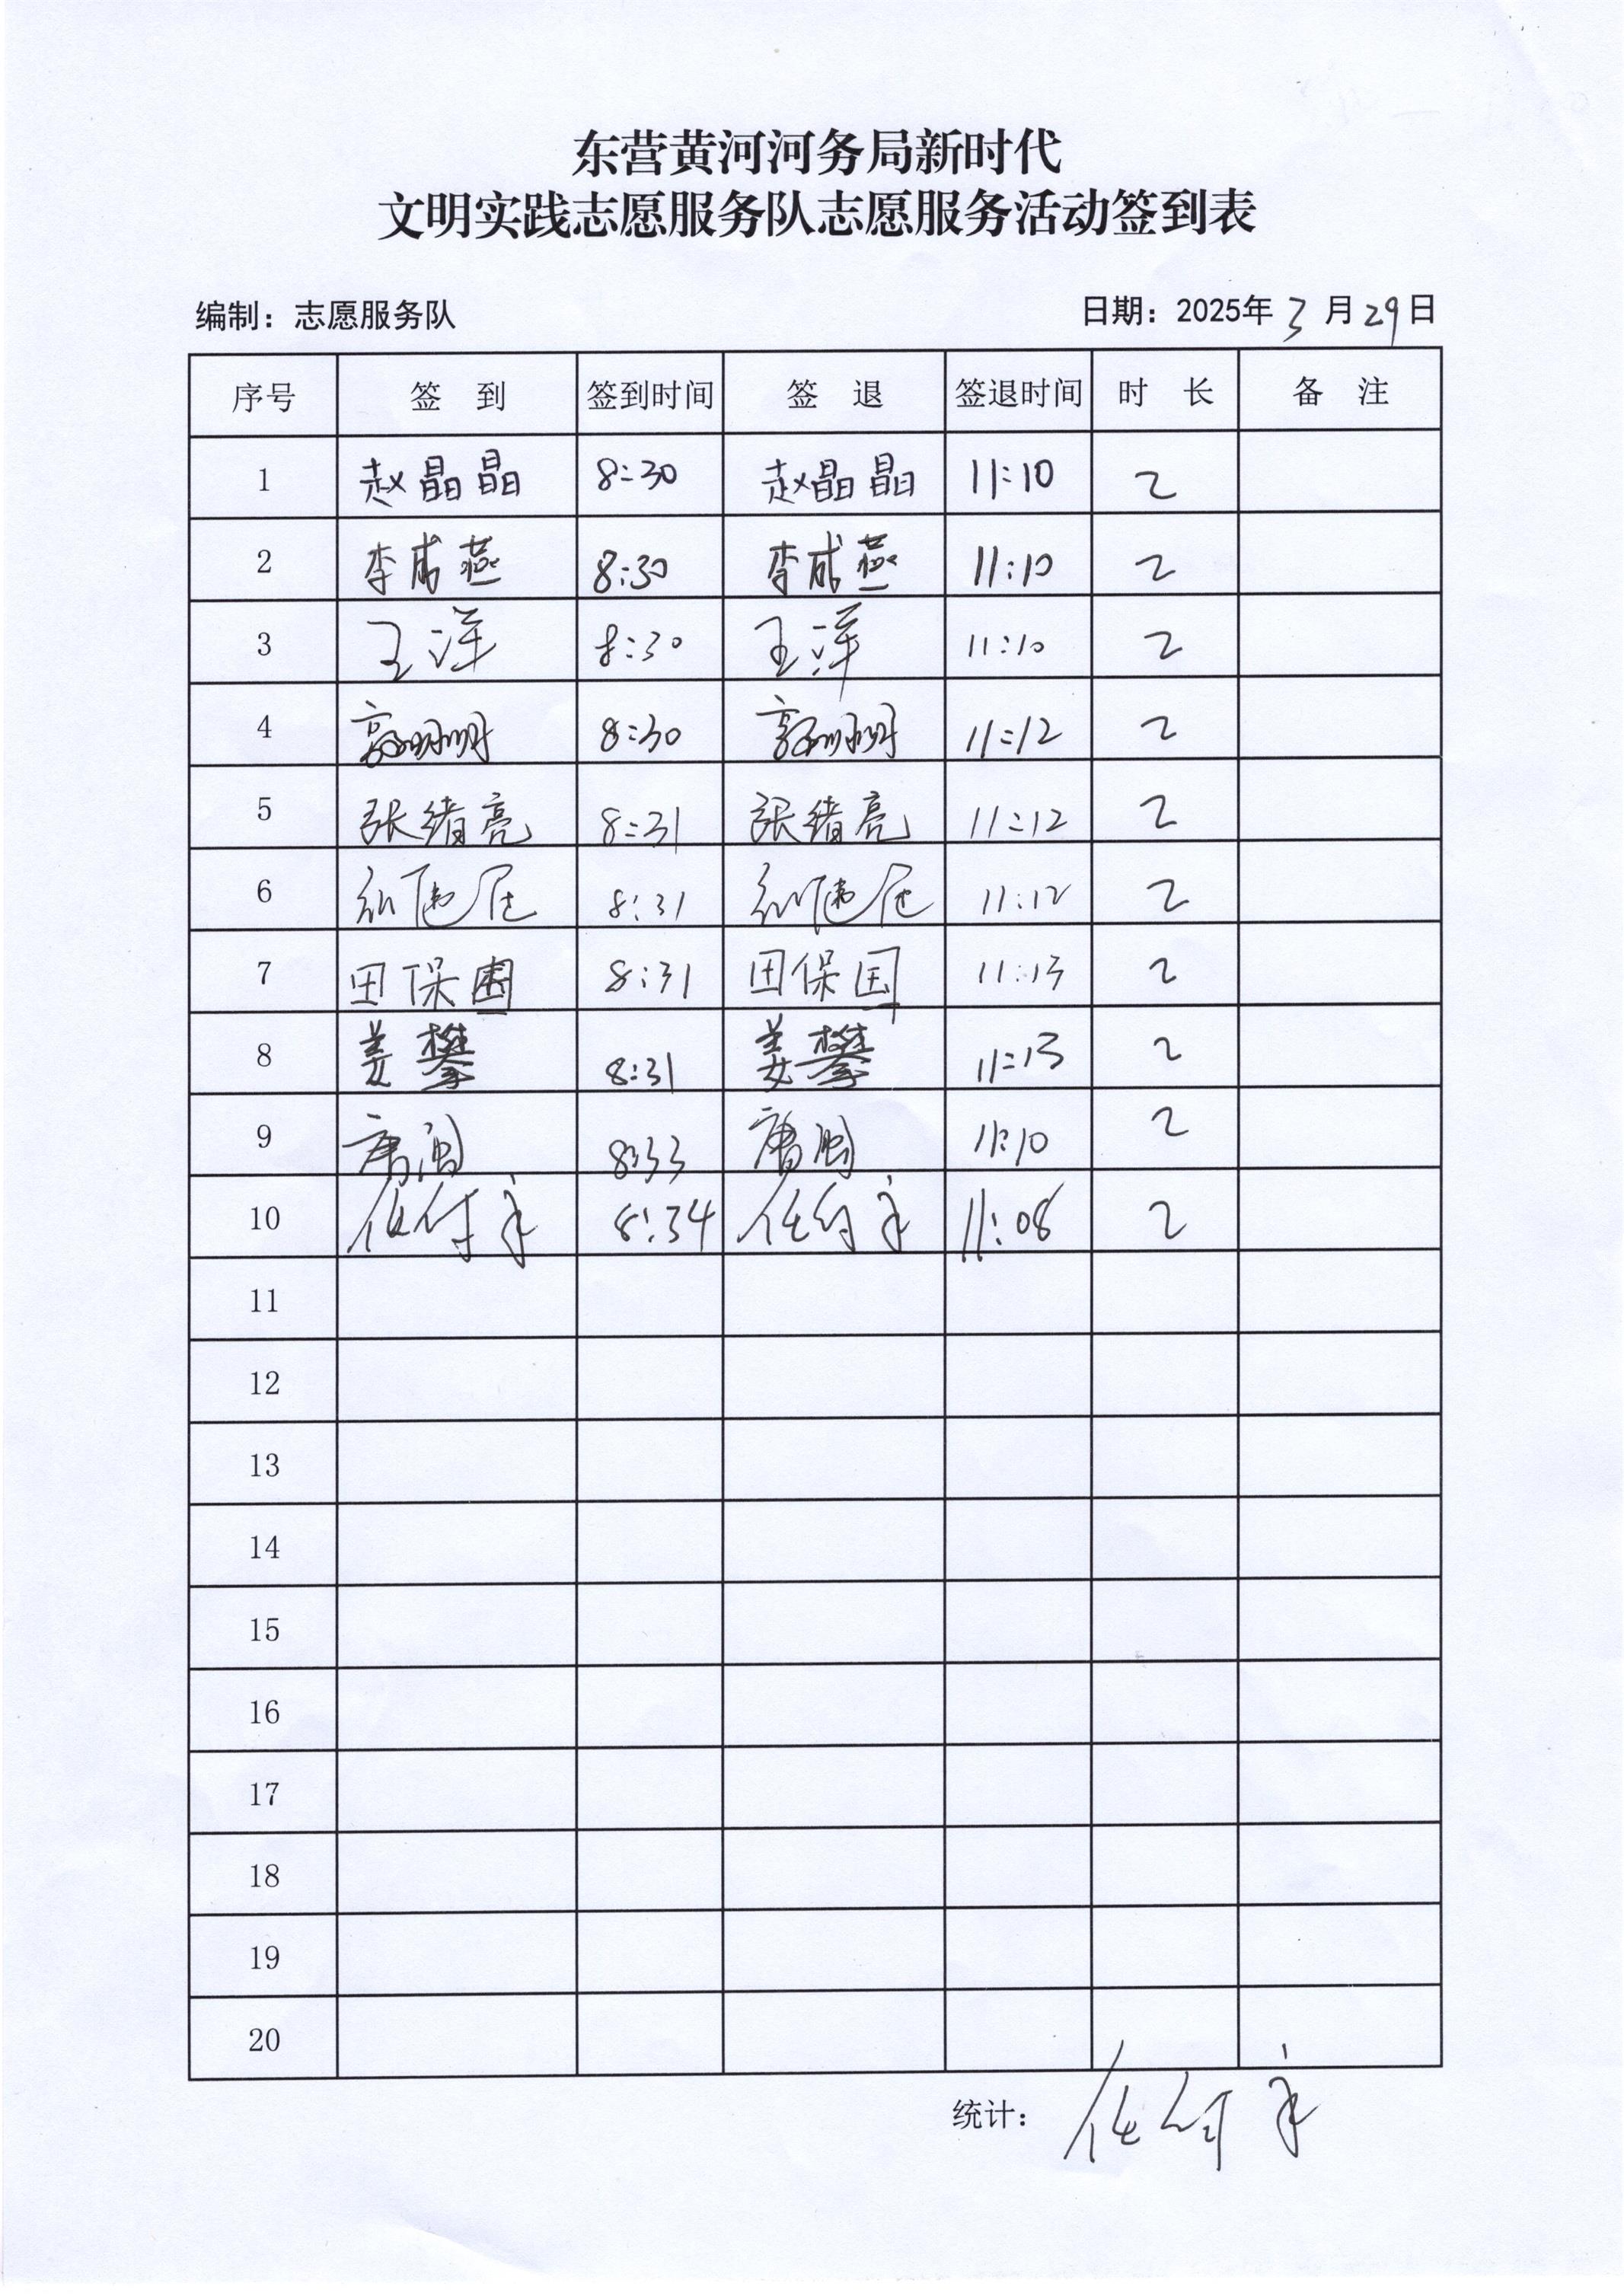 东营黄河河务局新时代
文明实践志愿服务队志愿服务活动签到表
编制：志愿服务队 日期：2025年3月29日
序号 签 到 签到时间 签 退 签退时间 时 长 备 注
1 赵晶晶 8:30 赵晶晶 11:10 2
2 李成燕 8:30 李成燕 11:10 2
3 王洋 8:30 王洋 11:10 2
4 郭明明 8:30 郭明明 11:12 2
5 张绪亮 8:31 张绪亮 11:12 2
6 8:31 11:12 2
7 田保国 8:31 田保国 11:13 2
8 姜攀 8:31 姜攀 11:13 2
9 8:33 11:10 2
10 8:34 11:08 2
11
12
13
14
15
16
17
18
19
20
统计：